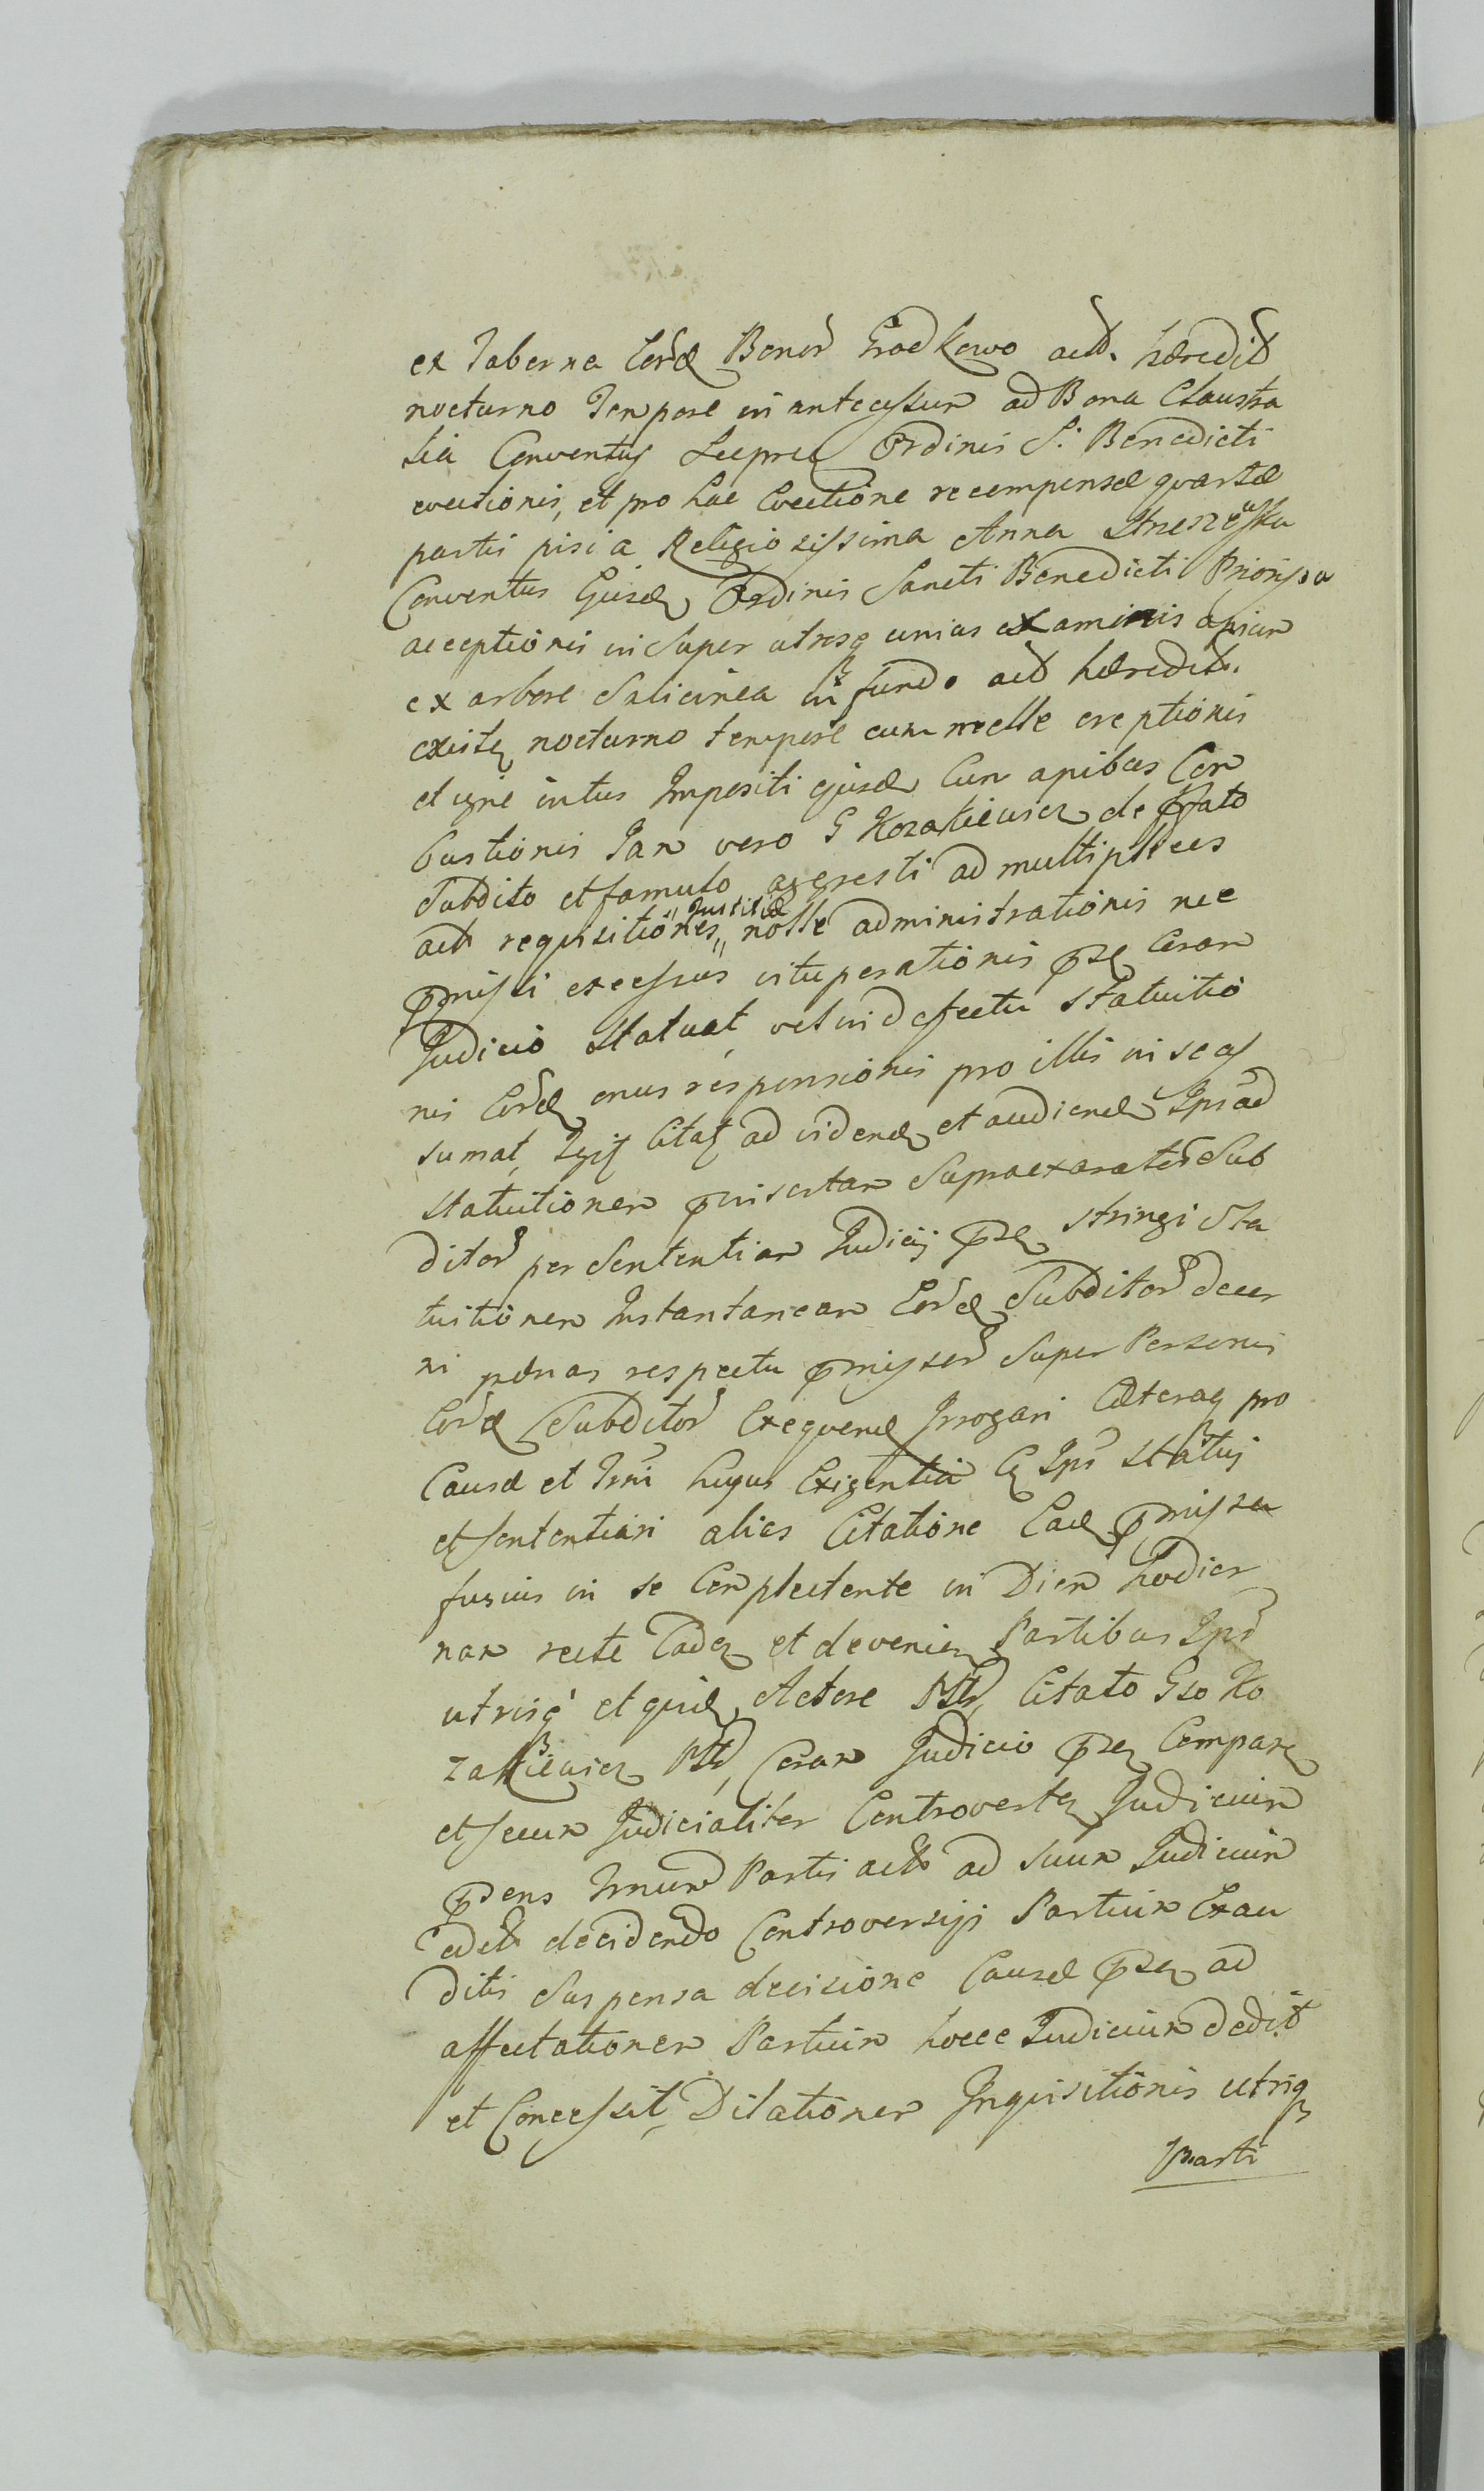 ex Taberna Eord Bonor Grodkowo act. hæredit
nocturno Tempore in antecessum ad Bona Claustra
lia Conventus Ordinis S. Benedicti
evectionis, et pro hac Evectione recompensæ quartæ
partis pisi a Religiosissima Anna
Conventus Ejusd Ordinis Sancti Benedicti Priorissa
acceptionis in Super utrosq unius examinis apium
ex arbore Salicinea in fundo act hæredit.
existen nocturno tempore cum melle ereptionis
et igne intus Impositi ejusd Cum apibus Com
bustionis Jam vero G Kozakiewicz de pffato
Subdito et famulo agresti ad multiplices
act requisitiones „ Justitiæ nolle administrationis nec
pmissi excessus vituperationis psen Coram
Judicio Statuat, vel in defectu Statuitio
nis Eord onus responsionis pro illis in se as
sumat, Igit Citat ad vidend et audiend Ipsi ad
Statuitionem pinsertam Supraexarator Sub
ditor per Sententiam Judicij psen stringi Sta
tuitionem Instantaneam Eord Subditor decer
ni pænas respectu pmissor Super Personis
Eord Subditor Exequend Irrogari Cæteraq pro
Causæ et Trni hujus Exigentia Ipsi
et sententiari alias Citatione Ead pmissa
fusius in se Complectente in Diem hodier
nam recte Caden et devenien Partibus Ipsi
utrisq et quid Actore Citato Gso Ko
zakiewicz Coram Judicio psen Comparen
et secum Judicialiter Controverten Judicium
psens Partis act ad suum Judicium
decidendo Controversijs Partium Exau
ditis Suspensa decisione Causæ psen ad
affectationem Partium hocce Judicium dedit
et Concessit, Dilationem Inquisitionis utriq
Parti